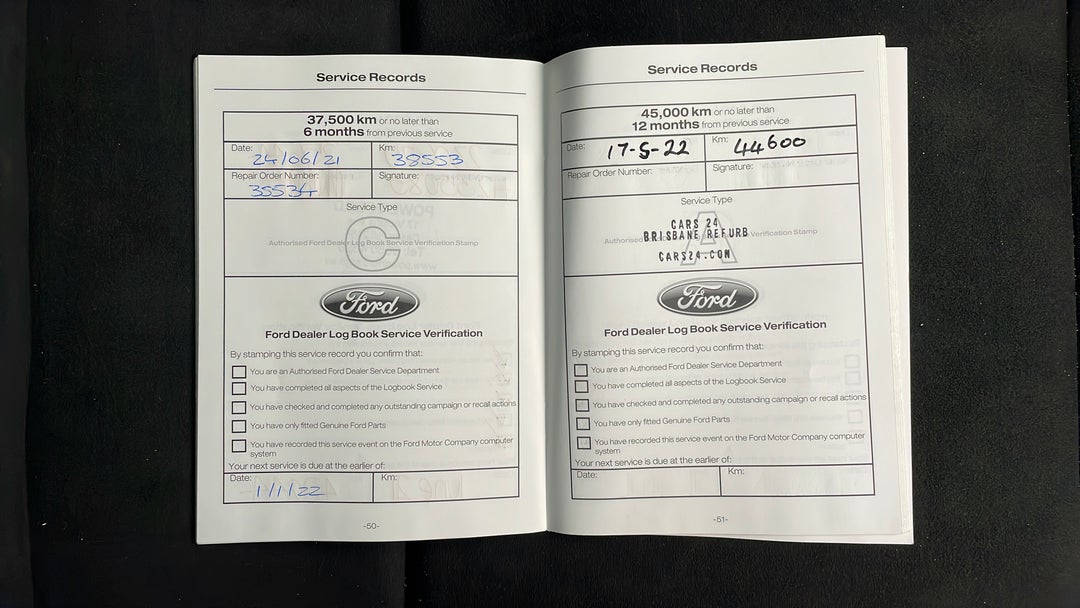 Service Records
37,500 km or no later than
6 months from previous service
Date:
24/06/21
Km:
38553
Repair Order Number:
35534
Signature:
Service Type
C
Authorised Ford Dealer Log Book Service Verification Stamp
Ford
Ford Dealer Log Book Service Verification
By stamping this service record you confirm that:
You are an Authorised Ford Dealer Service Department
You have completed all aspects of the Logbook Service
You have checked and completed any outstanding campaign or recall actions
You have only fitted Genuine Ford Parts
You have recorded this service event on the Ford Motor Company computer
system
Your next service is due at the earlier of:
Date:
1/1/22
Km:
-50-
Service Records
45,000 km or no later than
12 months from previous service
Date:
17-5-22
Km:
44600
Repair Order Number:
Signature:
Service Type
A
CARS 24
BRISBANE REFURB
Authorised Verification Stamp
CARS24.COM
Ford
Ford Dealer Log Book Service Verification
By stamping this service record you confirm that:
You are an Authorised Ford Dealer Service Department
You have completed all aspects of the Logbook Service
You have checked and completed any outstanding campaign or recall actions
You have only fitted Genuine Ford Parts
You have recorded this service event on the Ford Motor Company computer
system
Your next service is due at the earlier of:
Date:
Km:
-51-